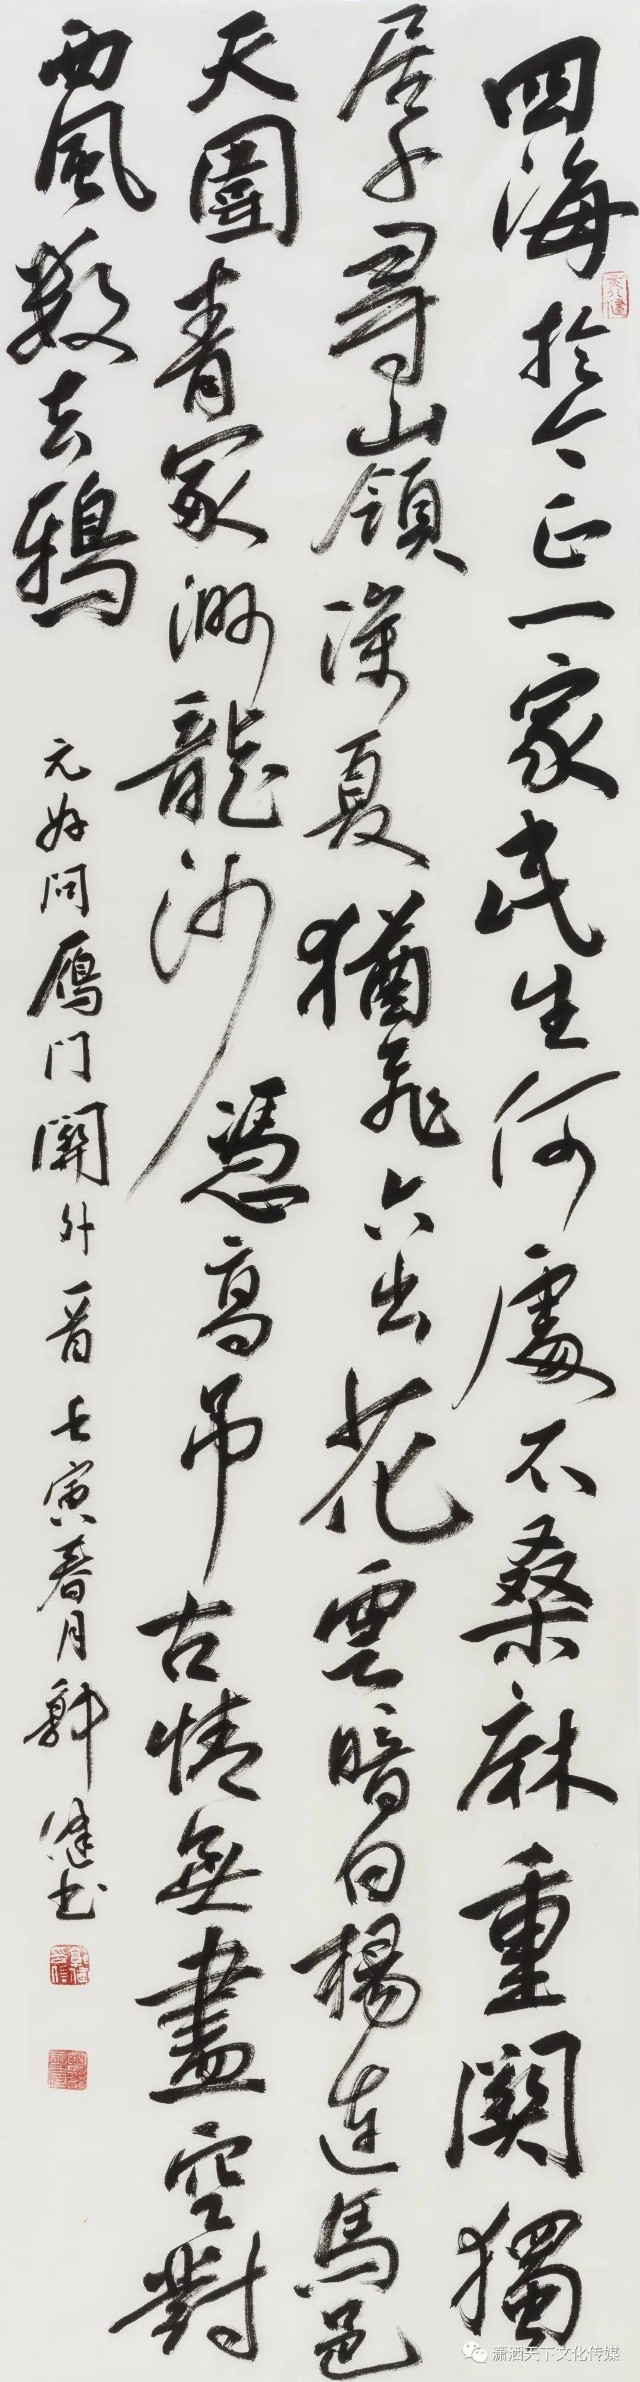 四海於今正一家民生何處不桑麻重關獨
居千尋嶺深夏猶飛六出花雲暗白楊連馬邑
天圍青冢渺龍沙憑高吊古情無盡空對
西風數去鴉
元好問鴈门關外一首壬寅春月郭健书
潇洒天下文化传媒